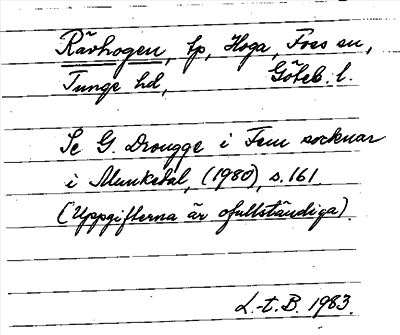 Rävhogen, lp, Hoga, Foss sn,
Tunge hd, Göteb. l.
Se G. Drougge i Fem socknar
i Munkedal, (1980), s. 161.
(Uppgifterna är ofullständiga).
L.-t. B. 1983.